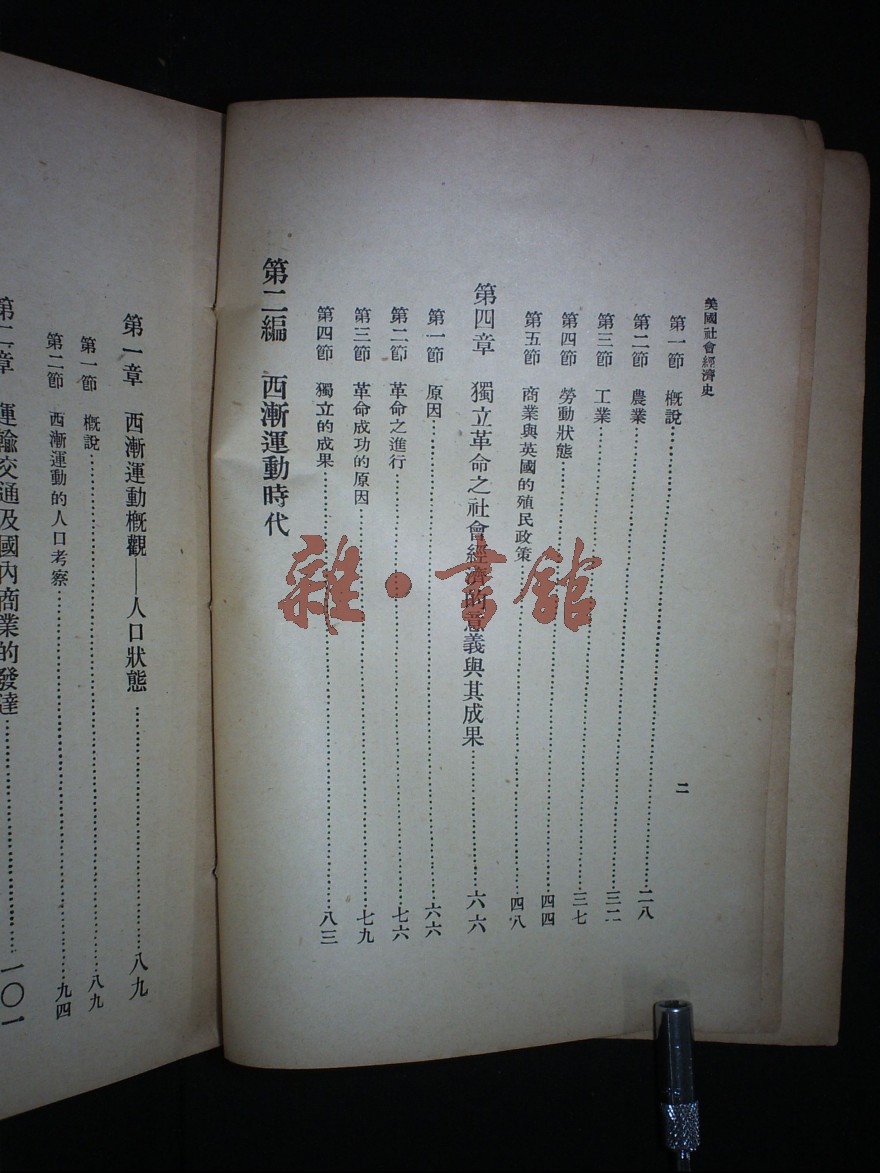 美國社會經濟史
二
第一節 概說……二八
第二節 農業……三二
第三節 工業……三七
第四節 勞動狀態……四四
第五節 商業與英國的殖民政策……四八
第四章 獨立革命之社會經濟的意義與其成果……六六
第一節 原因……六六
第二節 革命之進行……七六
第三節 革命成功的原因……七九
第四節 獨立的成果……八三
第二編 西漸運動時代
第一章 西漸運動概觀——人口狀態……八九
第一節 概說……八九
第二節 西漸運動的人口考察……九四
第二章 運輸交通及國內商業的發達……一〇一
雜·書館